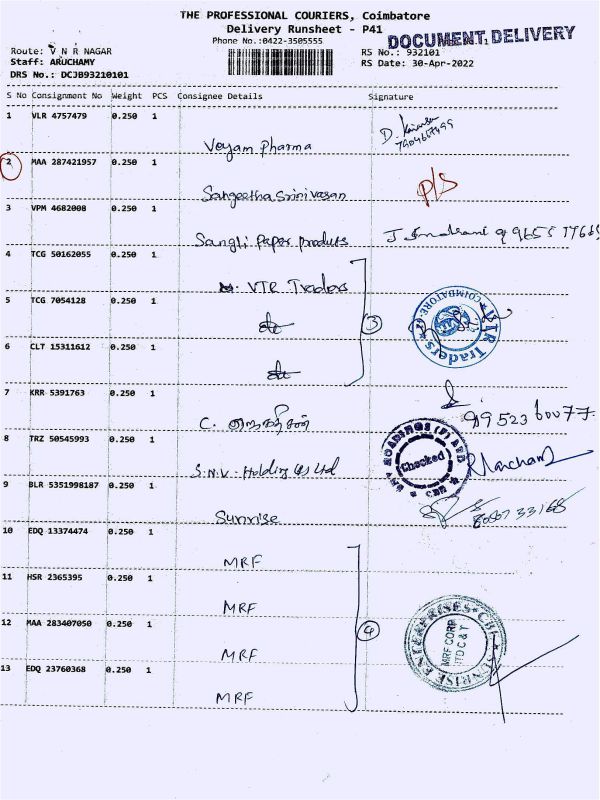 THE PROFESSIONAL COURIERS, Coimbatore
Delivery Runsheet - P41
Phone No.:0422-3505555
DOCUMENT DELIVERY
Route: V N R NAGAR
RS No.: 932101
Staff: ARUCHAMY
RS Date: 30-Apr-2022
DRS No.: DCJB93210101
S No Consignment No Weight PCS Consignee Details Signature
1 VLR 4757479 0.250 1
Veyam Pharma
2 MAA 287421957 0.250 1
Sangeetha Srinivasan P/S
3 VPM 4682008 0.250 1
Sangli Paper Products
4 TCG 50162055 0.250 1
VTR Traders
5 TCG 7054128 0.250 1
do
3
VTR Traders * COIMBATORE
6 CLT 15311612 0.250 1
do
7 KRR 5391763 0.250 1
C.
99523 60077
8 TRZ 50545993 0.250 1
S.N.V. Holdings Ltd
Checked
9 BLR 5351998187 0.250 1
Sunrise
10 EDQ 13374474 0.250 1
MRF
11 HSR 2365395 0.250 1
MRF
4
12 MAA 283407050 0.250 1
MRF
SUNRISE ENTERPRISES * CBE
MRF CORP
13 EDQ 23760368 0.250 1
MRF